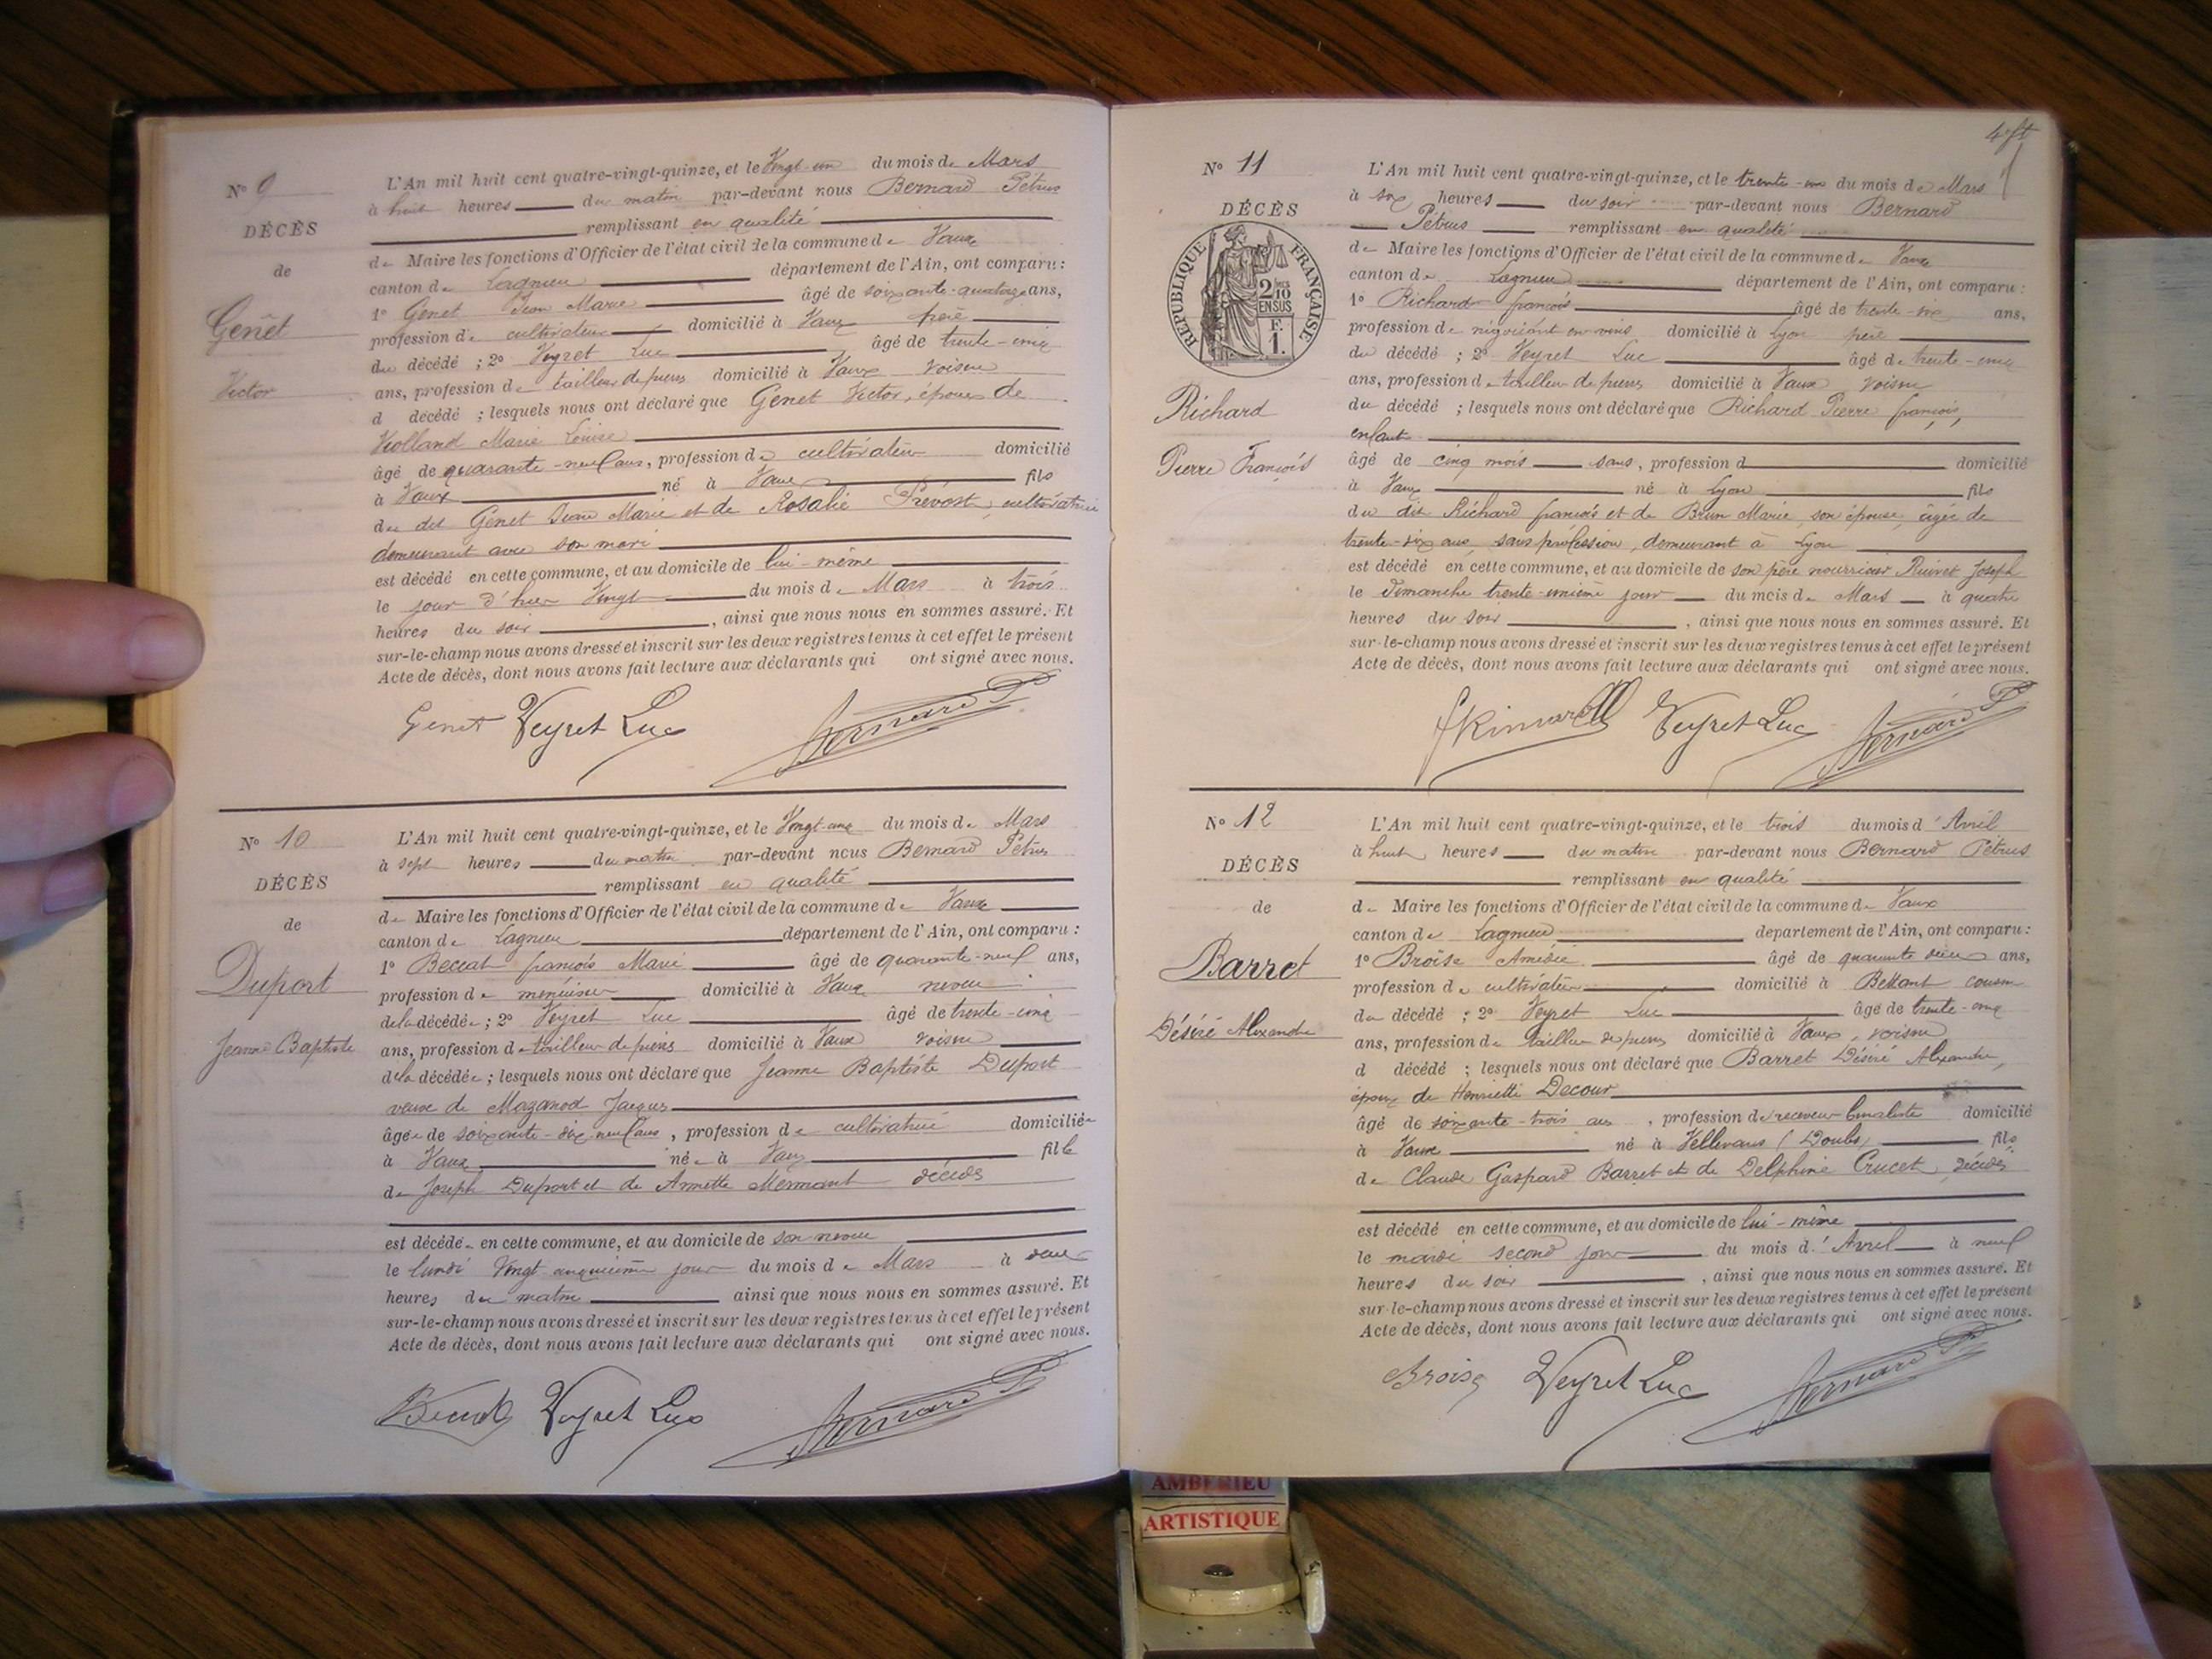 N° 9
DÉCÈS
de
Genêt
Victor
L'An mil huit cent quatre-vingt-quinze, et le Vingt-un du mois de Mars
à huit heures du matin par-devant nous Bernard Pétrus
remplissant en qualité
de Maire les fonctions d'Officier de l'état civil de la commune de Vaux
canton de Lagnieu département de l'Ain, ont comparu :
1° Genet Jean Marie âgé de soixante-quatorze ans,
profession de cultivateur domicilié à Vaux père
du décédé ; 2° Veyret Luc âgé de trente-cinq
ans, profession de tailleur de pierres domicilié à Vaux voisin
d décédé ; lesquels nous ont déclaré que Genet Victor, époux de
Violland Marie Louise
âgé de quarante-neuf ans, profession de cultivateur domicilié
à Vaux né à Vaux fils
du dit Genet Jean Marie et de Rosalie Prévost, cultivatrice
demeurant avec son mari
est décédé en cette commune, et au domicile de lui-même
le jour d'hier Vingt du mois de Mars à trois
heures du soir, ainsi que nous nous en sommes assuré. Et
sur-le-champ nous avons dressé et inscrit sur les deux registres tenus à cet effet le présent
Acte de décès, dont nous avons fait lecture aux déclarants qui ont signé avec nous.
Genet Veyret Luc Bernard P
N° 10
DÉCÈS
de
Duport
Jeanne Baptiste
L'An mil huit cent quatre-vingt-quinze, et le Vingt-cinq du mois de Mars
à sept heures du matin par-devant nous Bernard Pétrus
remplissant en qualité
de Maire les fonctions d'Officier de l'état civil de la commune de Vaux
canton de Lagnieu département de l'Ain, ont comparu :
1° Beccat françois Marie âgé de quarante-neuf ans,
profession de menuisier domicilié à Vaux neveu
de la décédée ; 2° Veyret Luc âgé de trente-cinq
ans, profession de tailleur de pierres domicilié à Vaux voisin
de la décédée ; lesquels nous ont déclaré que Jeanne Baptiste Duport
veuve de Mazanod Jacques
âgée de soixante-dix-neuf ans, profession de cultivatrice domiciliée
à Vaux née à Vaux fille
de Joseph Duport et de Annette Mermant décédés
est décédée en cette commune, et au domicile de son neveu
le lundi Vingt-cinquième jour du mois de Mars à deux
heures du matin ainsi que nous nous en sommes assuré. Et
sur-le-champ nous avons dressé et inscrit sur les deux registres tenus à cet effet le présent
Acte de décès, dont nous avons fait lecture aux déclarants qui ont signé avec nous.
Beccat Veyret Luc Bernard P
N° 11
DÉCÈS
RÉPUBLIQUE FRANÇAISE
2/10 EN SUS
F. 1.
Richard
Pierre François
L'An mil huit cent quatre-vingt-quinze, et le trente-un du mois de Mars
à six heures du soir par-devant nous Bernard
Pétrus remplissant en qualité
de Maire les fonctions d'Officier de l'état civil de la commune de Vaux
canton de Lagnieu département de l'Ain, ont comparu :
1° Richard françois âgé de trente-six ans,
profession de négociant en vins domicilié à Lyon père
du décédé ; 2° Veyret Luc âgé de trente-cinq
ans, profession de tailleur de pierres domicilié à Vaux voisin
du décédé ; lesquels nous ont déclaré que Richard Pierre françois,
enfant
âgé de cinq mois sans, profession d domicilié
à Vaux né à Lyon fils
du dit Richard françois et de Brun Marie, son épouse, âgée de
trente-six ans, sans profession, demeurant à Lyon
est décédé en cette commune, et au domicile de son père nourricier Joseph
le Dimanche trente-unième jour du mois de Mars à quatre
heures du soir, ainsi que nous nous en sommes assuré. Et
sur-le-champ nous avons dressé et inscrit sur les deux registres tenus à cet effet le présent
Acte de décès, dont nous avons fait lecture aux déclarants qui ont signé avec nous.
Veyret Luc Bernard P
N° 12
DÉCÈS
de
Barret
Désiré Alexandre
L'An mil huit cent quatre-vingt-quinze, et le trois du mois d'Avril
à huit heures du matin par-devant nous Bernard Pétrus
remplissant en qualité
de Maire les fonctions d'Officier de l'état civil de la commune de Vaux
canton de Lagnieu département de l'Ain, ont comparu :
1° Broise Amédée âgé de quarante deux ans,
profession de cultivateur domicilié à Bettant cousin
du décédé ; 2° Veyret Luc âgé de trente-cinq
ans, profession de tailleur de pierres domicilié à Vaux, voisin
d décédé ; lesquels nous ont déclaré que Barret Désiré Alexandre,
époux de Henriette Decour
âgé de soixante-trois ans, profession de receveur buraliste domicilié
à Vaux né à Vellevans (Doubs) fils
de Claude Gaspard Barret et de Delphine Crucet, décédés
est décédé en cette commune, et au domicile de lui-même
le mardi second jour du mois d'Avril à neuf
heures du soir, ainsi que nous nous en sommes assuré. Et
sur-le-champ nous avons dressé et inscrit sur les deux registres tenus à cet effet le présent
Acte de décès, dont nous avons fait lecture aux déclarants qui ont signé avec nous.
Broise Veyret Luc Bernard P
AMBERIEU
ARTISTIQUE